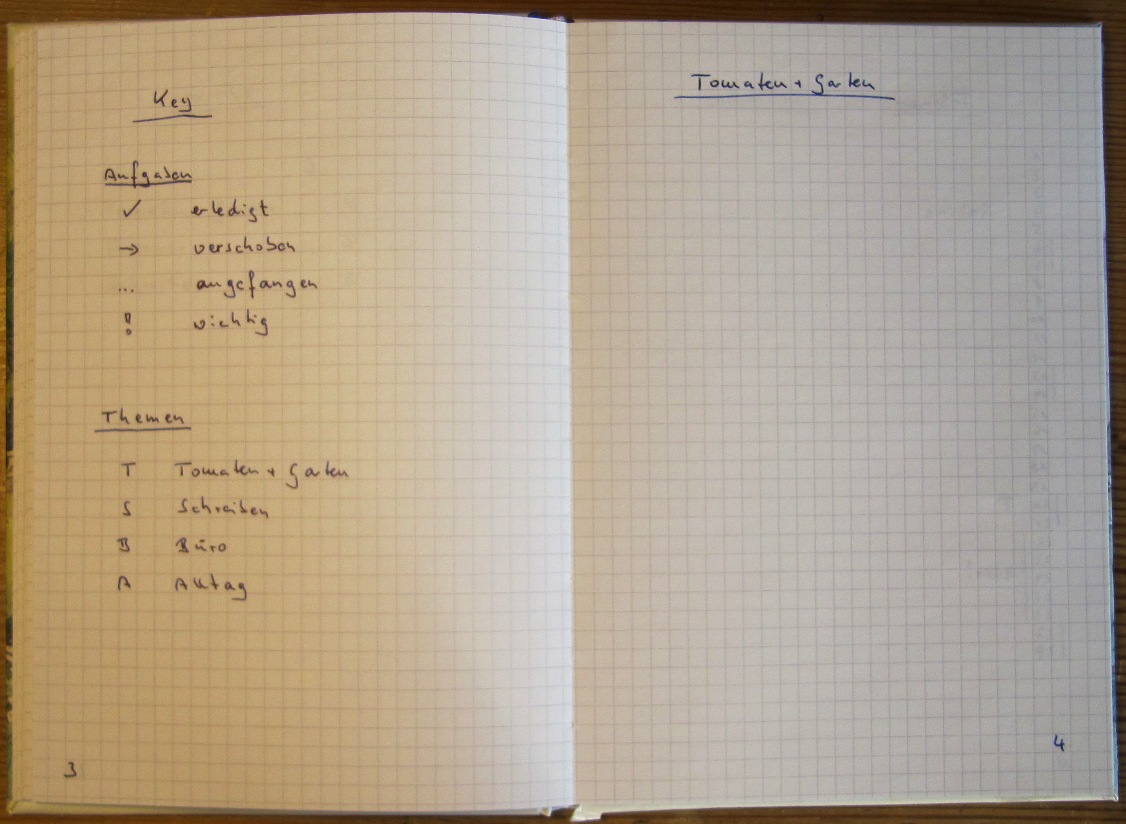 Key
Aufgaben
✓ erledigt
→ verschoben
... angefangen
! wichtig
Themen
T Tomaten + Garten
S Schreiben
B Büro
A Alltag
3
Tomaten + Garten
4